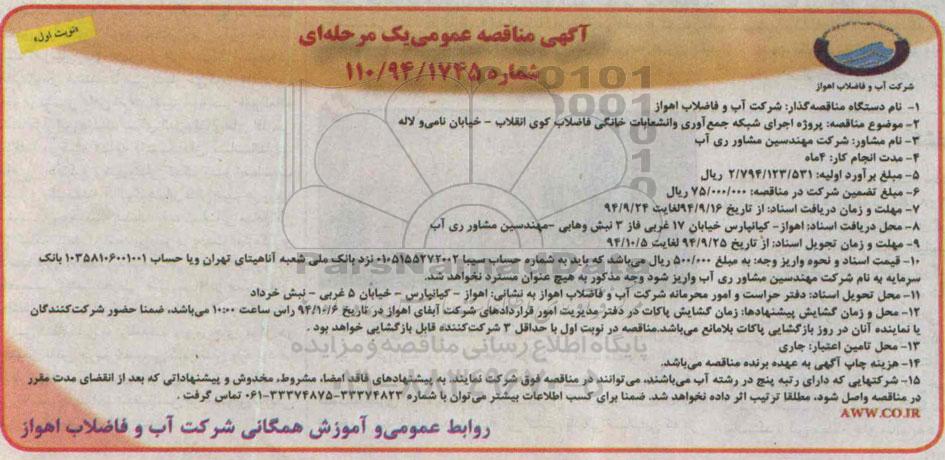 آگهی مناقصه عمومی‌یک مرحله‌ای
«نوبت اول»
شماره ۱۱۰/۹۴/۱۷۴۵
شرکت آب و فاضلاب اهواز
۱- نام دستگاه مناقصه‌گذار: شرکت آب و فاضلاب اهواز
۲- موضوع مناقصه: پروژه اجرای شبکه جمع‌آوری وانشعابات خانگی فاضلاب کوی انقلاب - خیابان نامی‌و لاله
۳- نام مشاور: شرکت مهندسین مشاور ری آب
۴- مدت انجام کار: ۴ماه
۵- مبلغ برآورد اولیه: ۲/۷۹۴/۱۲۳/۵۳۱ ریال
۶- مبلغ تضمین شرکت در مناقصه: ۷۵/۰۰۰/۰۰۰ ریال
۷- مهلت و زمان دریافت اسناد: از تاریخ ۹۴/۹/۱۶لغایت ۹۴/۹/۲۴
۸- محل دریافت اسناد: اهواز- کیانپارس خیابان ۱۷ غربی فاز ۳ نبش وهابی -مهندسین مشاور ری آب
۹- مهلت و زمان تحویل اسناد: از تاریخ ۹۴/۹/۲۵ لغایت ۹۴/۱۰/۵
۱۰- قیمت اسناد و نحوه واریز وجه: به مبلغ ۵۰۰/۰۰۰ ریال می‌باشد که باید به شماره حساب سیبا ۰۱۰۵۱۵۵۲۷۲۰۰۲ نزد بانک ملی شعبه آناهیتای تهران ویا حساب ۱۰۳۵۸۱۰۶۰۰۱۰۰۱ بانک
سرمایه به نام شرکت مهندسین مشاور ری آب واریز شود وجه مذکور به هیچ عنوان مسترد نخواهد شد.
۱۱- محل تحویل اسناد: دفتر حراست و امور محرمانه شرکت آب و فاضلاب اهواز به نشانی: اهواز - کیانپارس - خیابان ۵ غربی - نبش خرداد
۱۲- محل و زمان گشایش پیشنهادها: زمان گشایش پاکات در دفتر مدیریت امور قراردادهای شرکت آبفای اهواز در تاریخ ۹۴/۱۰/۶ راس ساعت ۱۰:۰۰ می‌باشد، ضمنا حضور شرکت‌کنندگان
یا نماینده آنان در روز بازگشایی پاکات بلامانع می‌باشد.مناقصه در نوبت اول با حداقل ۳ شرکت‌کننده قابل بازگشایی خواهد بود .
۱۳- محل تامین اعتبار: جاری
۱۴- هزینه چاپ آگهی به عهده برنده مناقصه می‌باشد.
۱۵- شرکتهایی که دارای رتبه پنج در رشته آب می‌باشند، می‌توانند در مناقصه فوق شرکت نمایند. به پیشنهادهای فاقد امضا، مشروط، مخدوش و پیشنهاداتی که بعد از انقضای مدت مقرر
در مناقصه واصل شود، مطلقا ترتیب اثر داده نخواهد شد. ضمنا برای کسب اطلاعات بیشتر می‌توان با شماره ۳۳۳۷۴۸۲۳-۳۳۳۷۴۸۷۵-۰۶۱ تماس گرفت .
AWW.CO.IR
روابط عمومی‌و آموزش همگانی شرکت آب و فاضلاب اهواز
پایگاه اطلاع رسانی مناقصه و مزایده